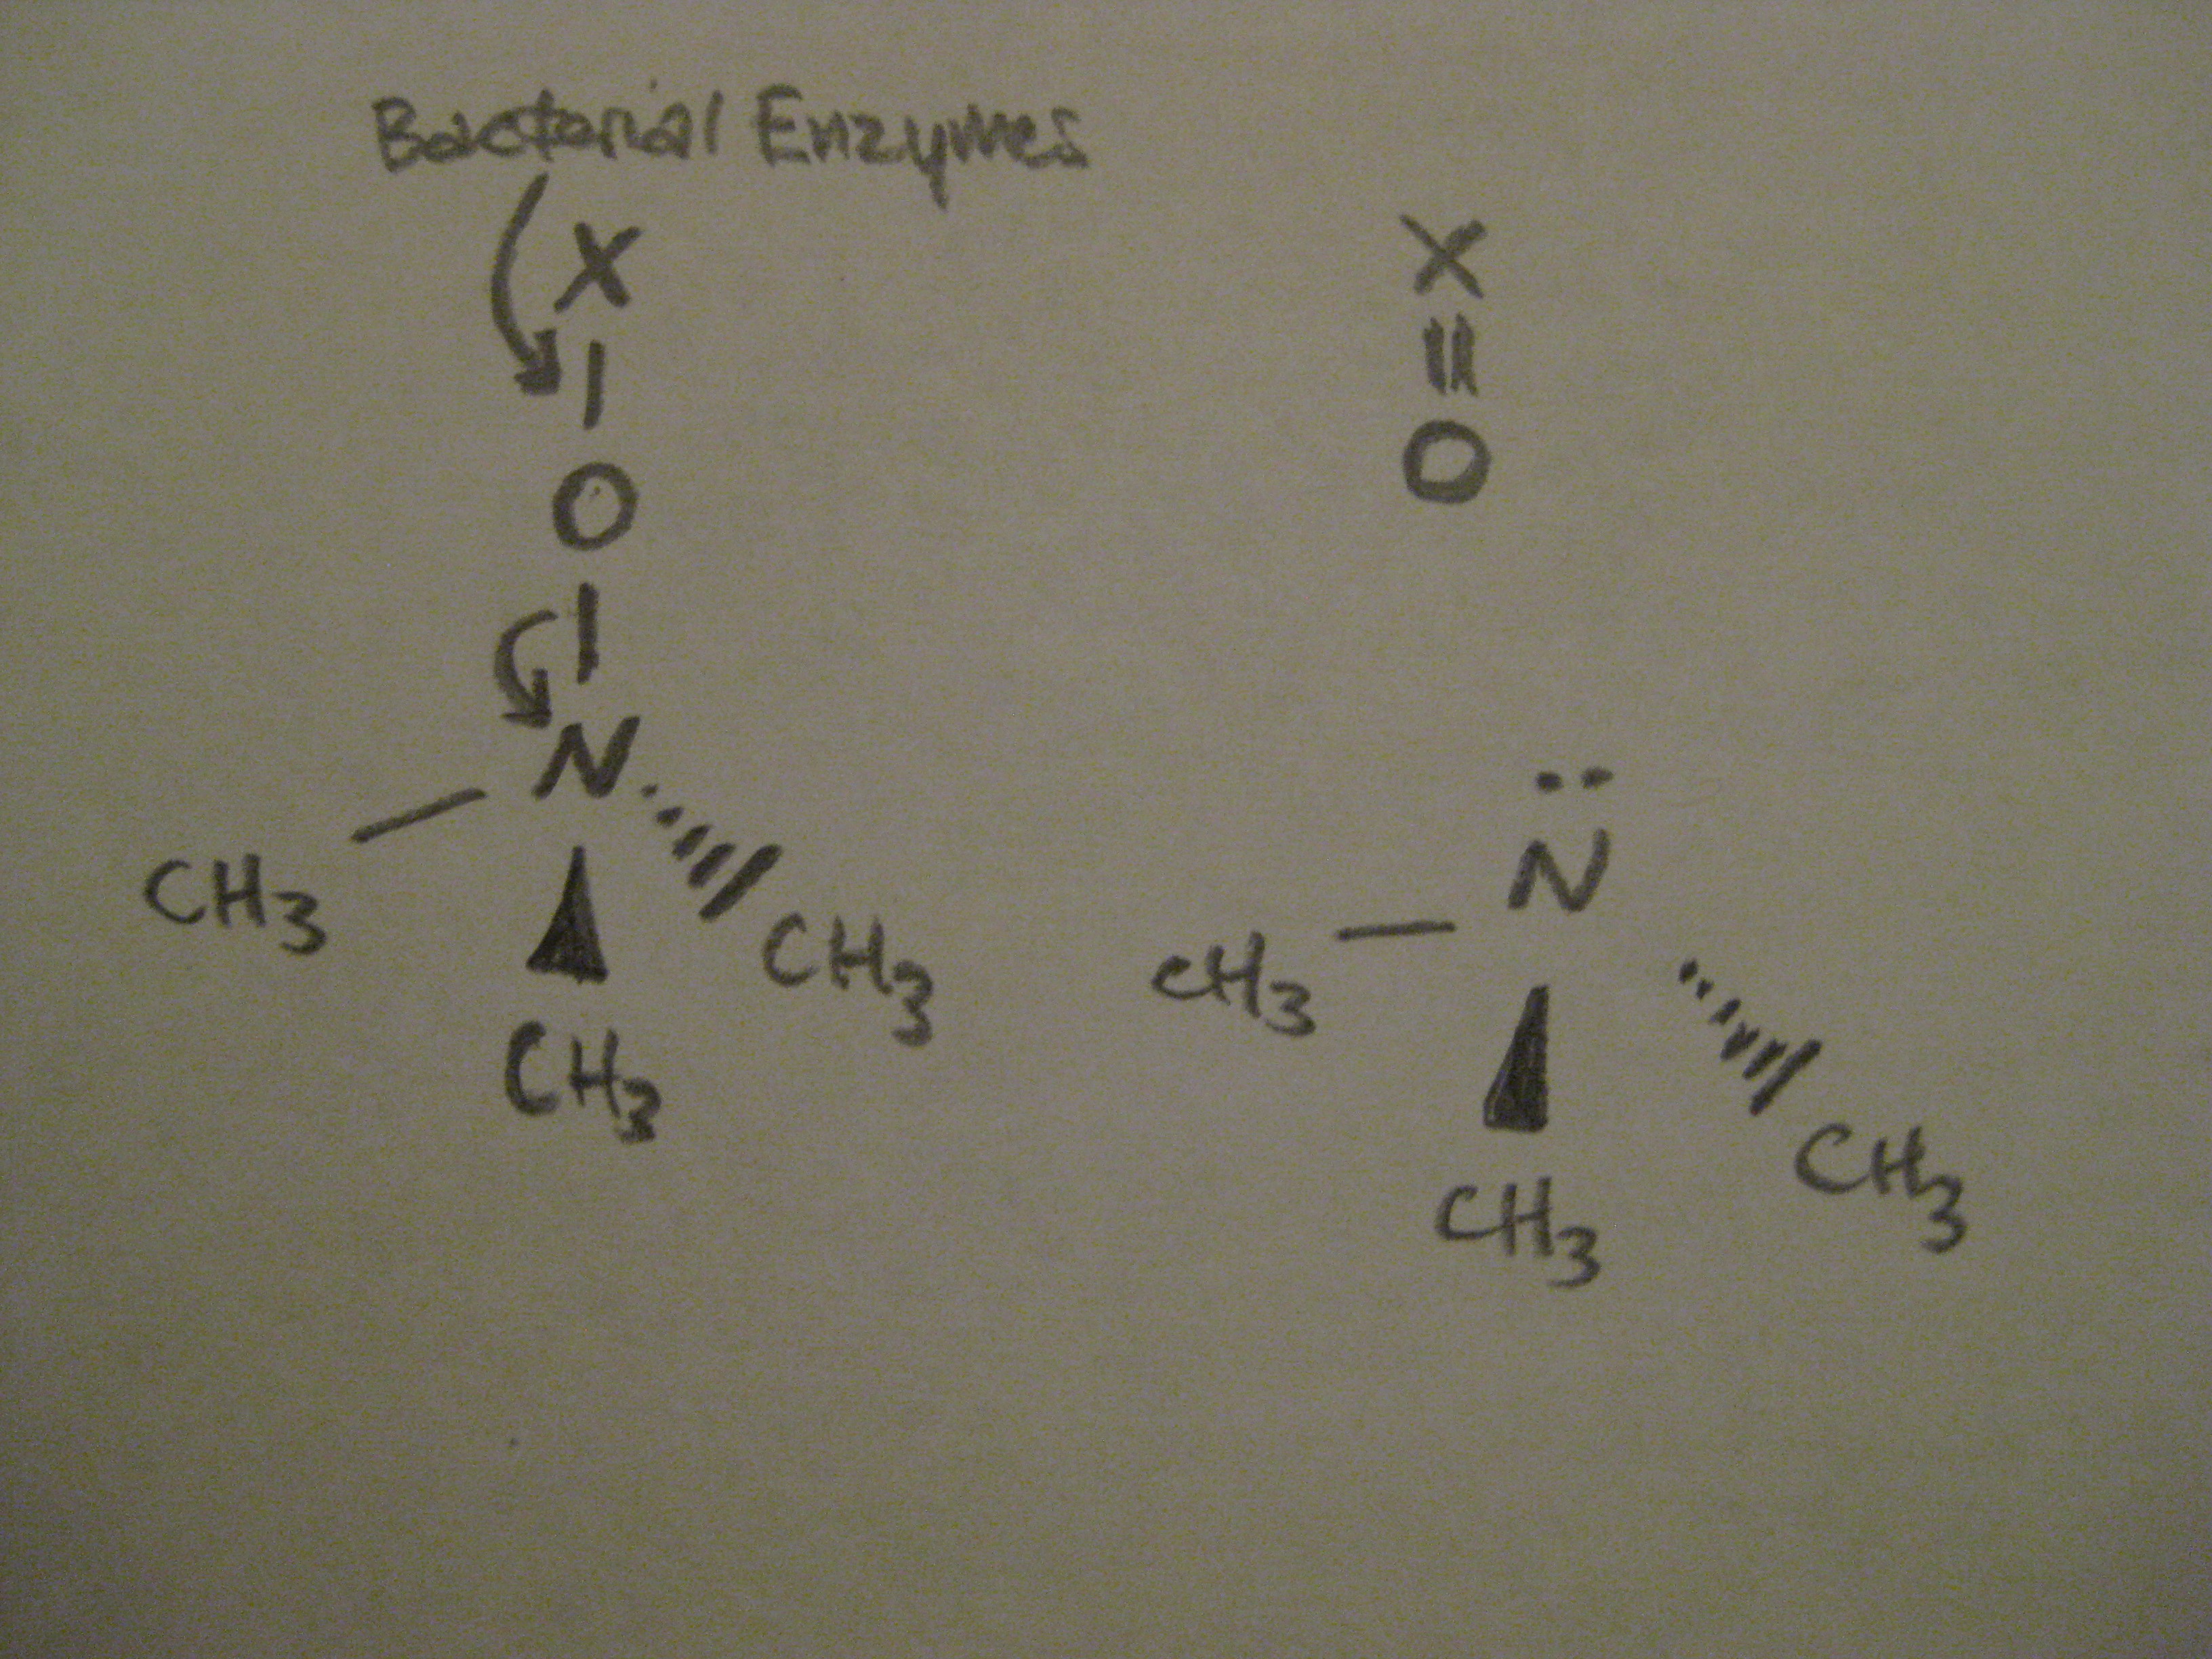 Bacterial Enzymes
X X
O O
N N
CH3 CH3 CH3
CH3 CH3
CH3